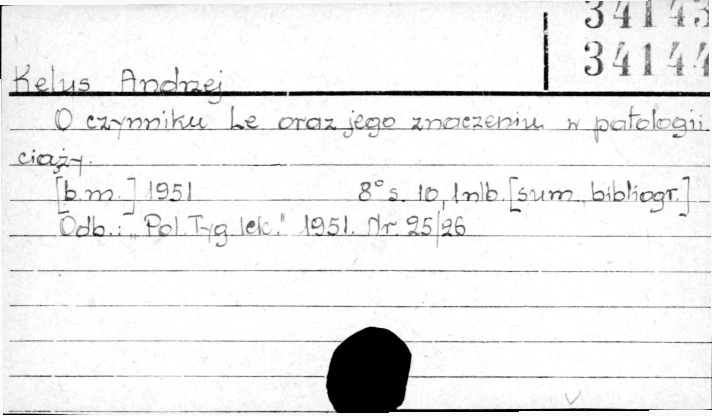 34143
34144
Kelus Andrzej
O czynniku Le oraz jego znaczeniu w patologii
ciąży.
[b.m.] 1951 8° s. 10, 1nlb. [sum., bibliogr.]
Odb.: "Pol. Tyg. lek." 1951. Nr. 25/26